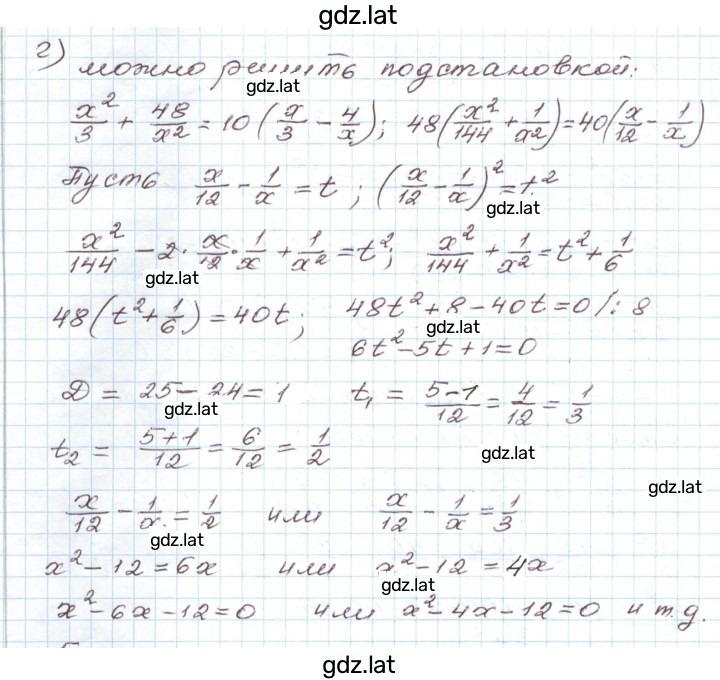 gdz.lat
г) можно решить подстановкой:
gdz.lat
x²/3 + 48/x² = 10(x/3 − 4/x); 48(x²/144 + 1/x²) = 40(x/12 − 1/x)
Пусть x/12 − 1/x = t; (x/12 − 1/x)² = t²
gdz.lat
x²/144 − 2·x/12·1/x + 1/x² = t²; x²/144 + 1/x² = t² + 1/6
gdz.lat
48(t² + 1/6) = 40t; 48t² + 8 − 40t = 0 /: 8
gdz.lat
6t² − 5t + 1 = 0
D = 25 − 24 = 1 t₁ = (5−1)/12 = 4/12 = 1/3
gdz.lat
t₂ = (5+1)/12 = 6/12 = 1/2
gdz.lat
gdz.lat
x/12 − 1/x = 1/2 или x/12 − 1/x = 1/3
gdz.lat
x² − 12 = 6x или x² − 12 = 4x
gdz.lat
x² − 6x − 12 = 0 или x² − 4x − 12 = 0 и т.д.
gdz.lat